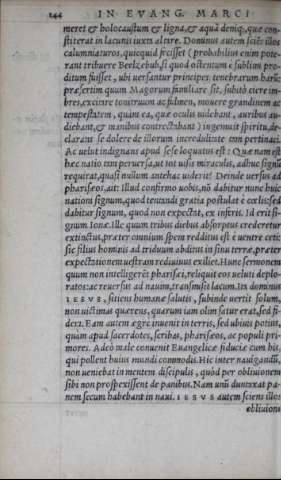 244 IN EVANG. MARCI
meret & holocaustum & ligna, & aquā deniq;, quæ con-
stiterat in lacunis iuxta altare. Dominus autem sciēs illos
calumniaturos, quicquid fecisset (probabilius enim pote-
rant tribuere Beelzebub, si quod ostentum è sublimi pro-
ditum fuisset, ubi uersantur principes tenebrarum harū:
præsertim quum Magorum familiare sit, subitò ciere im-
bres, excitare tonitruum ac fulmen, mouere grandinem ac
tempestatem, quàm ea, quæ oculis uidebant, auribus au-
diebant, & manibus contrectabant) ingemuit spiritu, de-
clarans se dolere de illorum incredulitate tam pertinaci.
Ac uelut indignans apud sese loquutus est: Quæ nam est
hæc natio tam peruersa, ut tot uisis miraculis, adhuc signū
requirat, quasi nullum antehac uiderit? Deinde uersus ad
phariseos, ait: Illud confirmo uobis, nō dabitur nunc huic
nationi signum, quod tentandi gratia postulat è cœlis: sed
dabitur signum, quod non expectat, ex inferis. Id erit si-
gnum Ionæ. Ille quum tribus diebus absorptus crederetur
extinctus, præter omnium spem redditus est è uentre ceti:
sic filius hominis ad triduum abditus in sinu terræ, præter
expectationem uestram rediuiuus exiliet. Hunc sermonem
quum non intelligerēt pharisæi, reliquit eos ueluti deplo-
ratos: ac reuersus ad nauim, transmisit lacum. Ita dominus
IESVS, sitiens humanæ salutis, subinde uertit solum,
non uictimas quærens, quarum iam olim satur erat, sed fi-
dem. Eam autem ægre inuenit in terris, sed ubiuis potius,
quàm apud sacerdotes, scribas, phariseos, ac populi pri-
mores. Adeò male conuenit Euangelicæ fiduciæ cum his,
qui pollent huius mundi commodis. Hic inter nauigandū,
non ueniebat in mentem discipulis, quòd per obliuionem
sibi non prospexissent de panibus. Nam unū duntaxat pa-
nem secum habebant in naui. IESVS autem sciens illos
obliuione